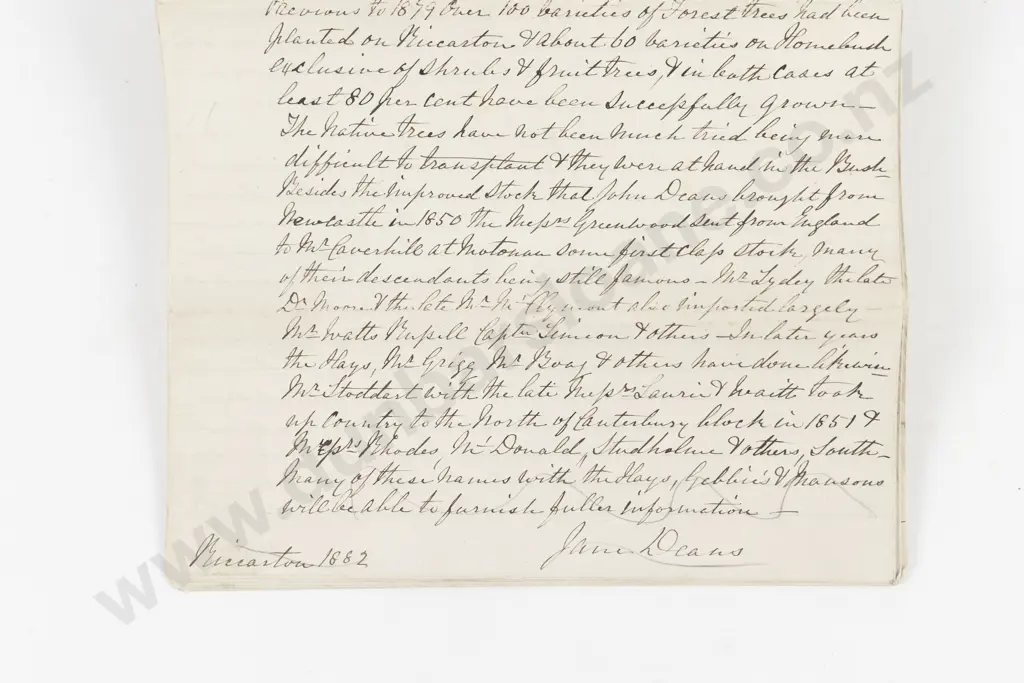 Previous to 1879 over 100 varieties of Forest trees had been
planted on Riccarton & about 60 varieties on Homebush
exclusive of shrubs & fruit trees, & in both cases at
least 80 per cent have been successfully grown —
The Native trees have not been much tried being more
difficult to transplant & they were at hand in the Bush
Besides the improved stock that John Deans brought from
Newcastle in 1850 the Messrs Greenwood sent from England
to Mr Caverhill at Motonau some first class stock, many
of their descendants being still famous — Mr the late
Dr Moore & the late Mr also imported largely —
Mr Watts Russell Captn Simeon & others — In later years
the Hays, Mr Grigg Mr Boag & others have done likewise
Mr Stoddart with the late Messrs Laurie & Waitt took
up country to the North of Canterbury block in 1851 &
Messrs Rhodes, McDonald, Studholme & others, South —
Many of these names with the Hays, Gebbies & Mansons
will be able to furnish fuller information —
Riccarton 1882 Jane Deans
www.dunbarsloane.co.nz